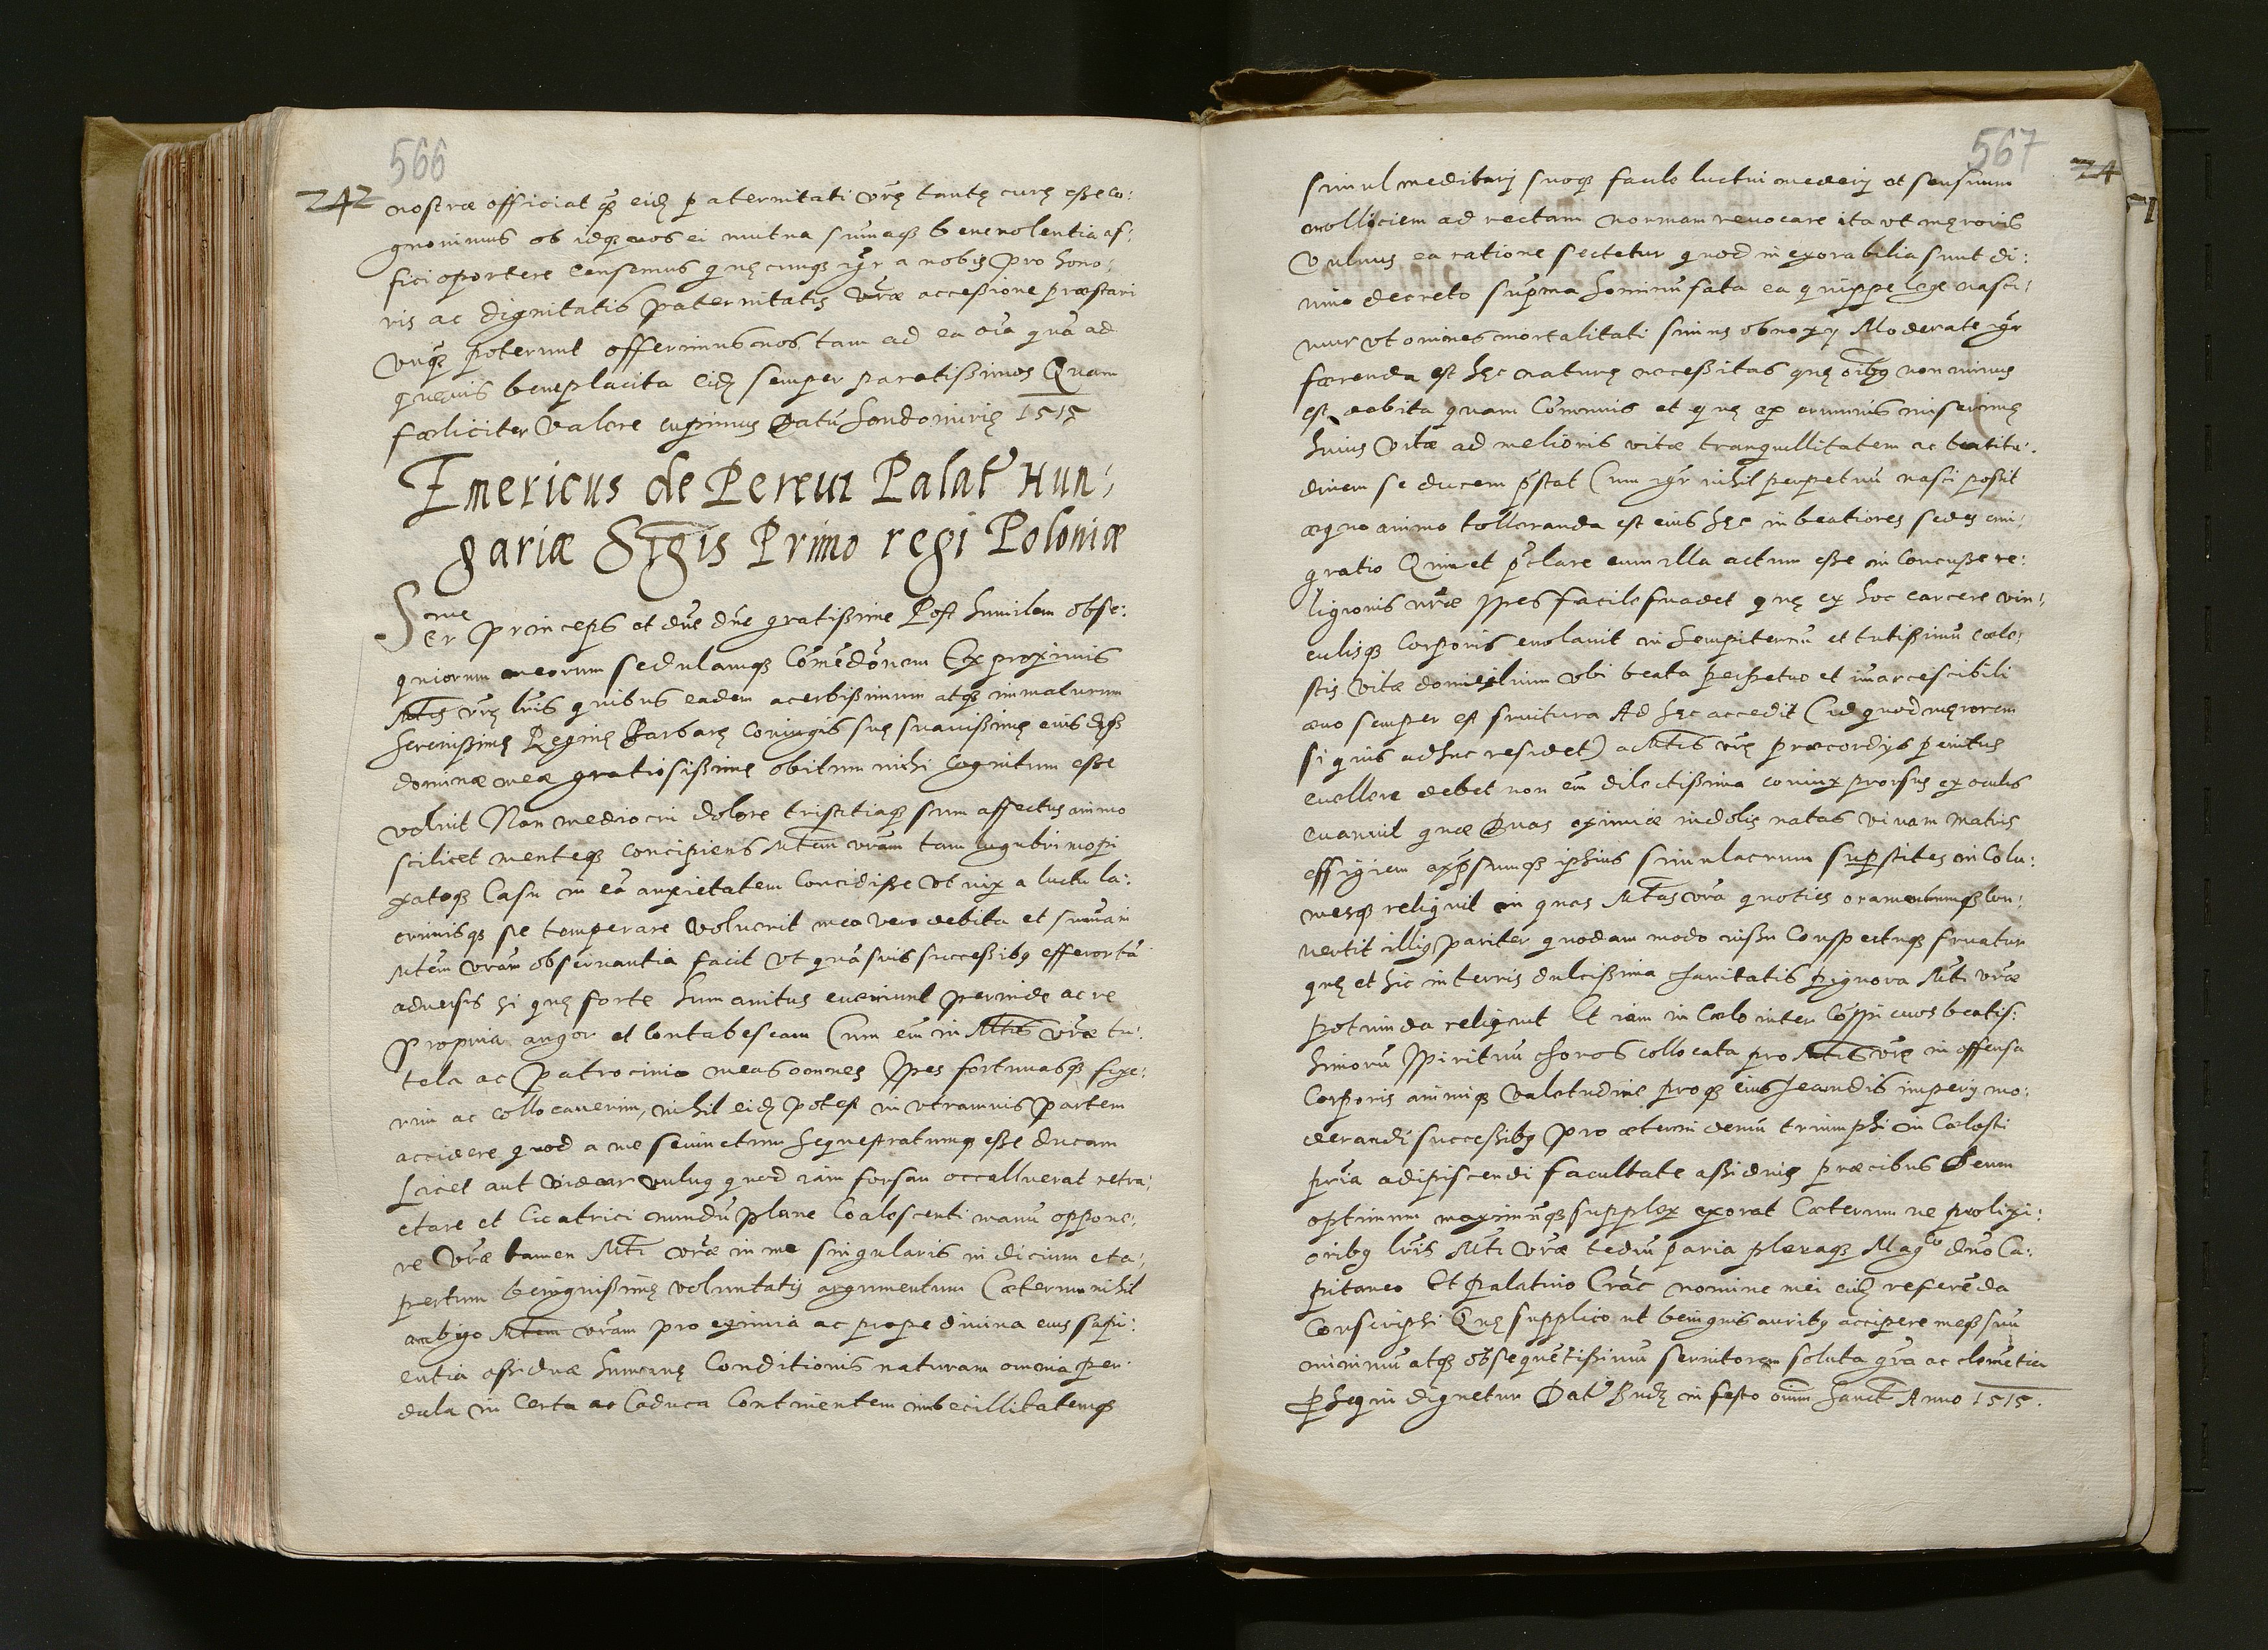 566
242
nostræ officiat qȝ eidȝ paternitati vrę tantę curę esse co:
gnovimus ob idqȝ eos ei mutua summaqȝ benevolentia af:
fici oportere censemus quęcunqȝ igr a nobis pro hono:
ris ac dignitatis paternitatis vræ accessione præstari
unqȝ poterunt offerimus nos tam ad ea oia quā ad
quęvis beneplacita eidȝ semper paratissimos Quam
fœliciter valere cupimus Datū 1515
Emericus de Pereni Palat Hun,
gariæ Sigis Primo regi Poloniæ
Sermē Princeps et dne dne gratissime Post humilem obse:
quiorum meorum sedulamqȝ Comēdōnem Ex proximis
Mtis vrę lris quibus eadem acerbissimum atqȝ immaturum
Serenissimę Reginę Barbarę Coniugis suę suavissimę eius dqȝ
dominæ meæ gratiosissimę obitum mihi cognitum esse
voluit Non mediocri dolore tristitiaqȝ sum affectus animo
scilicet menteqȝ concipiens Mtem vram tam lugubri inopi
natoqȝ Casu in eā anxietatem Concidisse vt vix a luctu la:
crimisqȝ se temperare voluerit mea vero debita et summa in
Mtem vram observantia facit vt quā suis successibȝ efferor tā
adversis si quę forte humanitus eveniunt perinde ac re
propria angor et contabescam Cum em in Mtis vræ tu:
tela ac Patrocinio meas omnes spes fortunasqȝ fixe:
rim ac collocaverim, nihil eidȝ potest in vtramvis partem
accidere quod a me seiunctum sequestratumqȝ esse ducam
Licet aut videar vulnȝ quod iam forsan occalluerat retra:
ctare et Cicatrici nundū plane Coalescenti manū oppone:
re vræ tamen Mti vræ in me singularis indicium et a:
pertum benignissimę voluntatis argumentum Cæterum nihil
ambigo Mtem vram pro eximia ac prope divina eius sapi:
entia assiduæ humanę Conditionis naturam omnia pen:
dula in Certa ac Caduca Continentem imbecillitatemqȝ
567
24
simul meditari suoqȝ facile luctui mederi et sensuum
molliciem ad rectam normam revocare ita vt męroris
Vulnus ea ratione sectetur quod inexorabilia sunt di:
vino decreto suprema hominū fata ea quippe lege nasci:
mur vt omnes mortalitati simus obnoxij Moderate igr
færenda est hęc naturę necessitas quę oibȝ non minus
est debita quam Communis et quę ex erumnis miserimę
huius vitæ ad melioris vitæ tranquillitatem ac beatitu:
dinem se ducem pstat Cum igr nihil perpetuū nasci possit
æquo animo tolleranda est eius hęc in beatiores sedes emi:
gratio Quin et pclare cum illa actum esse in concusse re:
ligionis nræ spes facile suadet quę ex hoc carcere vin:
culisqȝ corporis evolavit in sempiternū et tutissimū cæle:
stis vitæ domicilium vbi beata perpetuo et imarcescibili
ævo semper est fruitura Ad hęc accedit (id quod męrorem
si quis adhuc residet) a Mtis vrę præcordijs penitus
evellere debet non em dilectissima coniux prorsus ex oculis
evanuit quæ Duas eximiæ indolis natas vivam matris
effigiem expssumqȝ ipsius simulacrum superstites in Colu:
mesqȝ reliquit in quas Mtas vra quoties ora mentemqȝ con:
vertit illiȝ pariter quodam modo visu Conspectuqȝ fruatur
quę et hic in terris dulcissima charitatis pignora Mti vræ
potiunda reliquit Et iam in Cælo inter Cōspicuos beatis:
simorū spirituū choros collocata pro Mtis vrę in offensa
Corporis animiqȝ valetudine proqȝ eius secundis imperij mo:
derandi successibȝ pro æterni demū triumphi in Cælesti
pria adipiscendi facultate assiduis præcibus Deum
optimum maximūqȝ supplex exorat Cæterum ne prolixi:
oribȝ lris Mti vræ tediū pariā pleraqȝ Magco dno Ca:
pitaneo Et Palatino Crac nomine mei eidȝ referēda
Conscripsi Quę supplico ut benignis auribȝ accipere meqȝ suū
minimū atqȝ obsequētissimū servitorem soluta gra ac clemētia
psequi dignetur Dat Budę in festo oium Sanct Anno 1515.